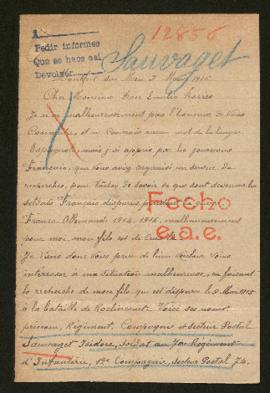 12856
A
Pedir informes
Que se haga así
Devolver
Sauvaget
Montfort sur Meu 3 1916
Cher Monsieur Don Emilio
Je n'ai malheureusement pas l'honneur de vous
Connaître, et ne connais aucun mot de la langue
Espagnole, mais j'ai appris par les journaux
Français, que vous avez organisé un service de
recherches, pour tâcher de savoir ce que sont devenus les
soldats Français disparus pendant la guerre
Franco-Allemande 1914-1916, malheureusement
pour moi, mon fils est de
Fecho
e.a.e.
Je viens donc vous prier de bien vouloir vous
intéresser à ma situation malheureuse, en faisant
la recherche de mon fils qui est disparu le 9 Mai 1915
à la bataille de Roclincourt. Voici ses noms,
prénom, Régiment, Compagnie et secteur Postal
Sauvaget Isidore, Soldat au 70e Régiment
d'Infanterie, Compagnie, Secteur Postal 74.